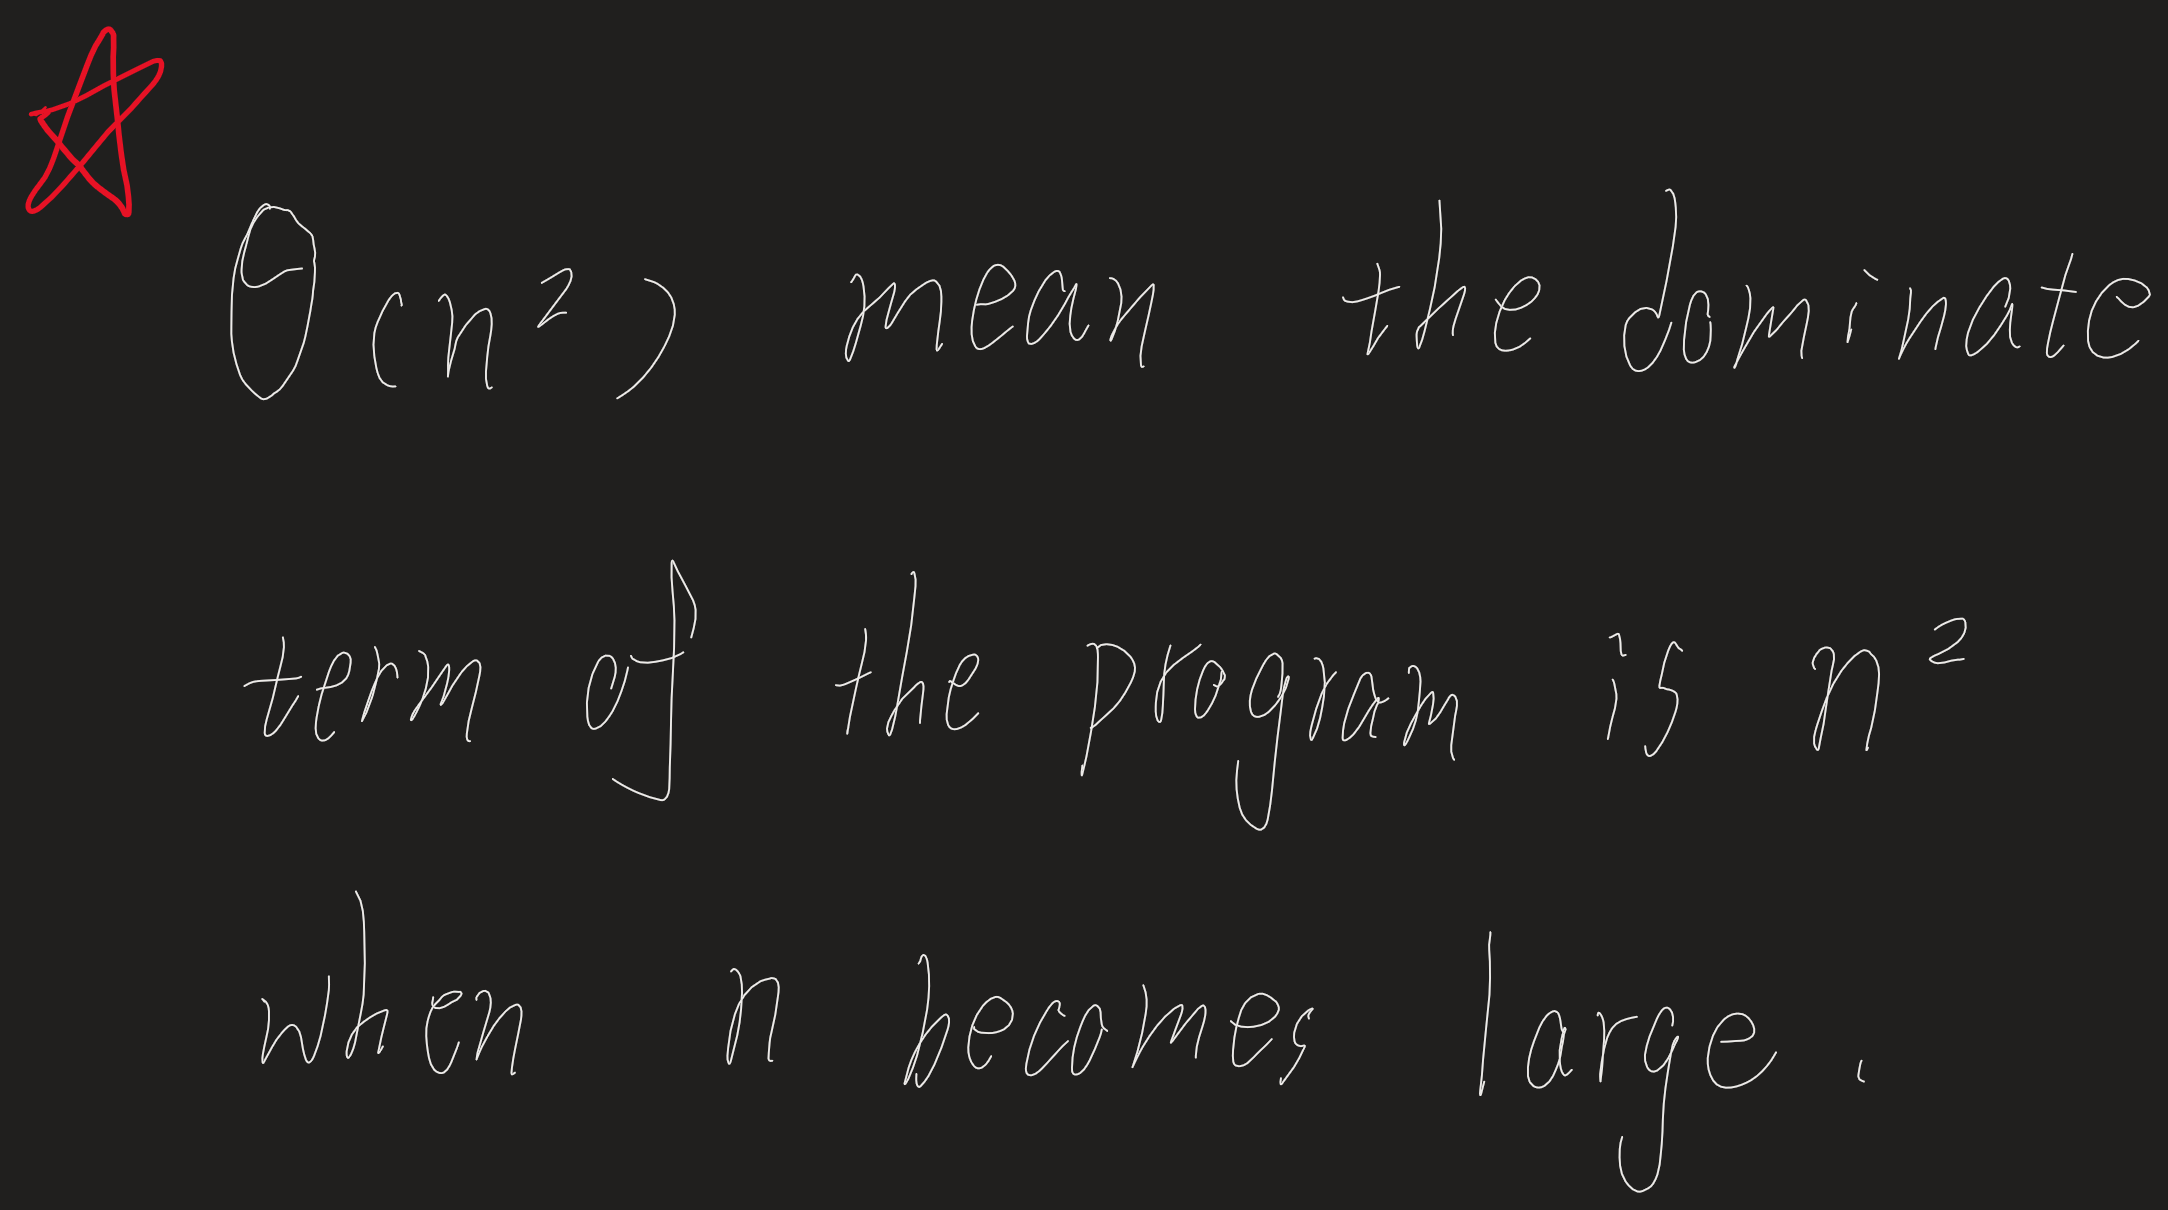 θ(n²) mean the dominate
term of the program is n²
when n becomes large.